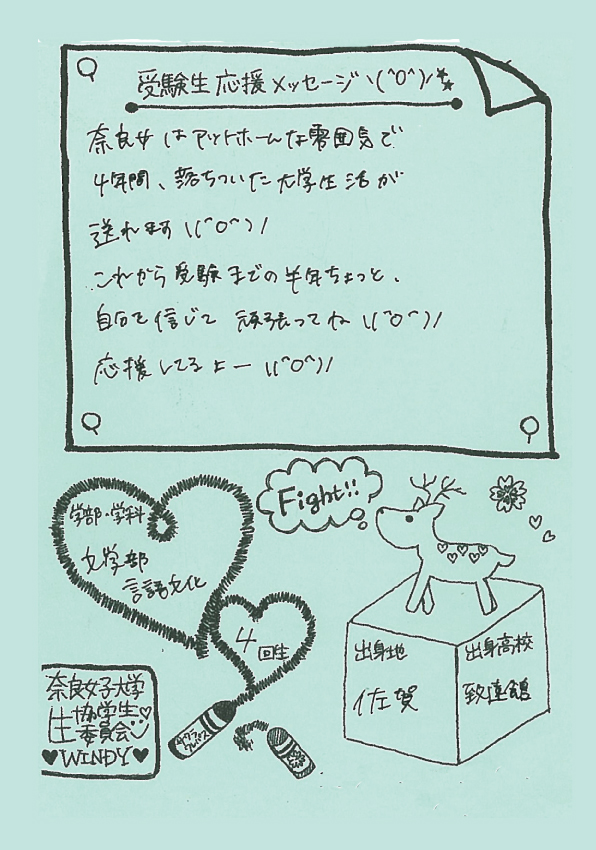 受験生応援メッセージ \(^0^)/
奈良女はアットホームな雰囲気で
4年間、落ちついた大学生活が
送れます \(^0^)/
これから受験までの半年ちょっと、
自分を信じて 頑張ってね \(^0^)/
応援してるよー \(^0^)/
Fight!!
学部・学科
文学部
言語文化
4回生
出身地
佐賀
出身高校
致遠館
奈良女子大学
生協学生
委員会
♥WINDY♥
サクラ
クレパス